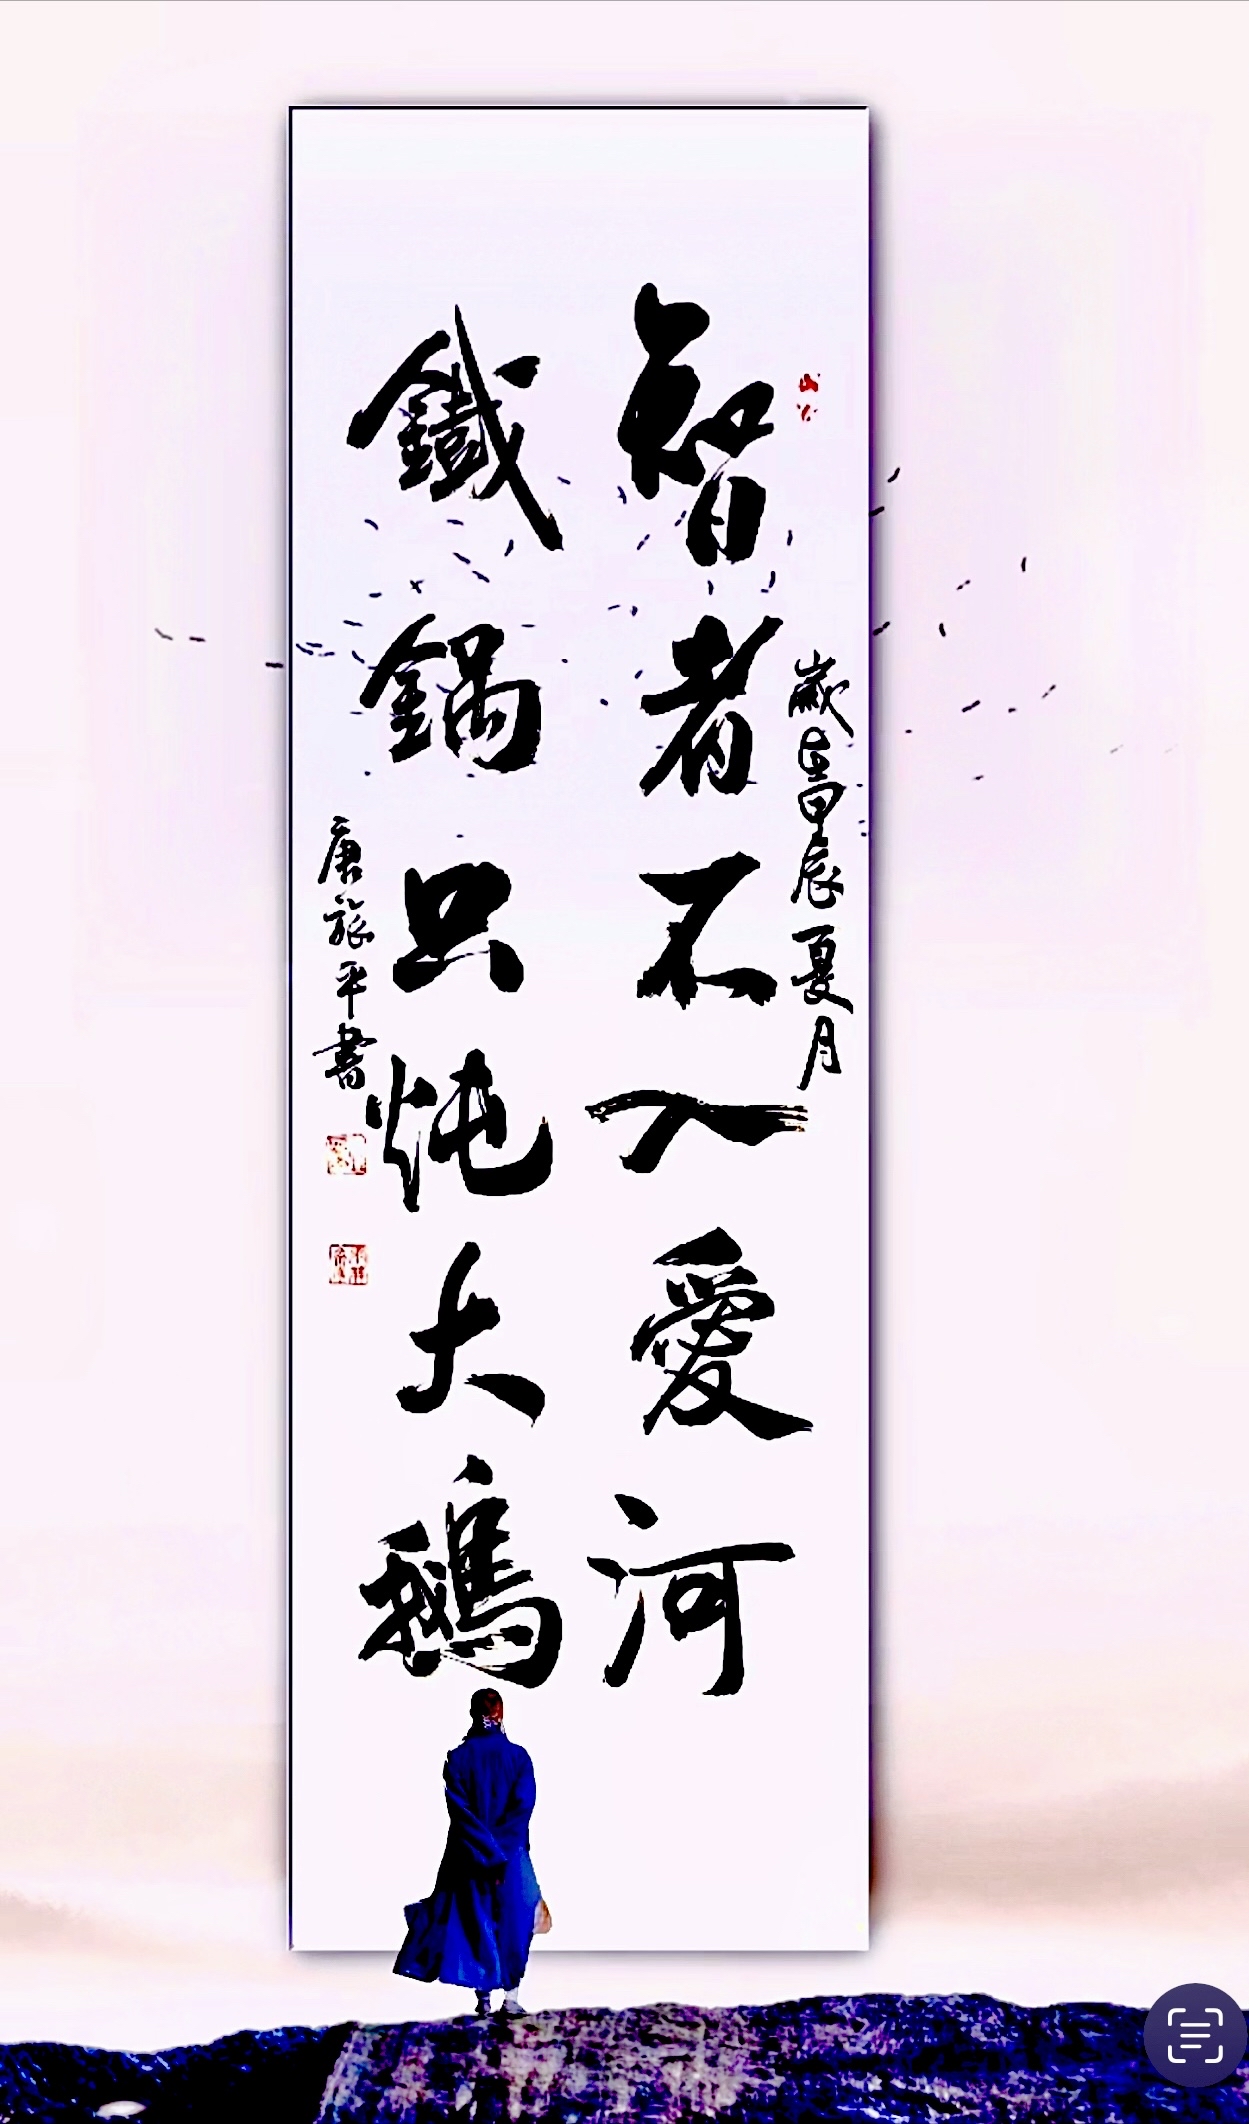 歲在甲辰夏月
智者不入愛河
鐵鍋只炖大鵝
唐旅平書